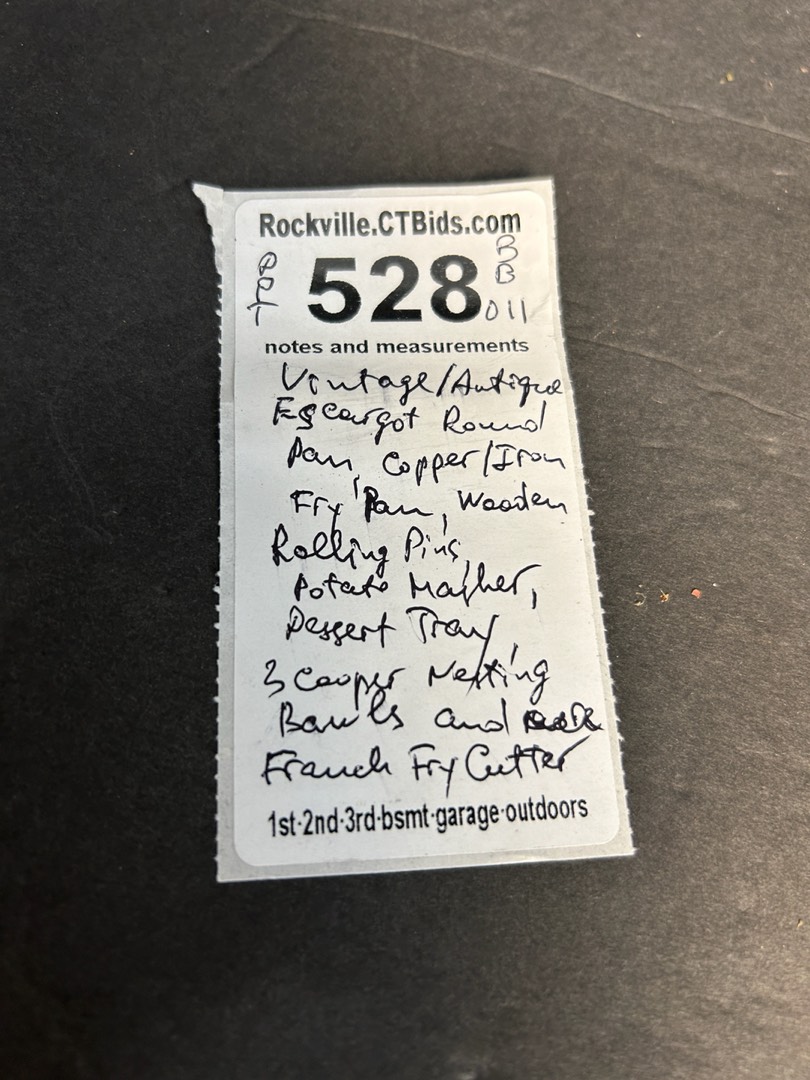 Rockville.CTBids.com
528
BB
011
notes and measurements
Vintage/Antique
Escargot Round
Pan, Copper/Iron
Fry Pan, Wooden
Rolling Pins,
Potato Masher,
Dessert Tray,
3 Cooper Nesting
Bawls and
Franch Fry Cutter
1st·2nd·3rd·bsmt·garage·outdoors